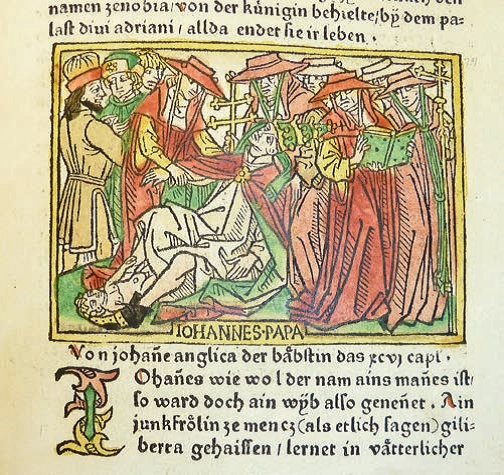 namen zenobia/von der kúnigin behielte/bÿ dem pa-
last diui adriani/allda endet sie ir leben.
IOHANNES·PAPA
Von johañe anglica der båbstin das xcvj capl.
IOhañes wie wol der nam ains mañes ist/
so ward doch ain wÿb also geneñet. Ain
junkfrôlin ze mencz (als etlich sagen) gili-
berta gehaissen/lernet in våtterlicher